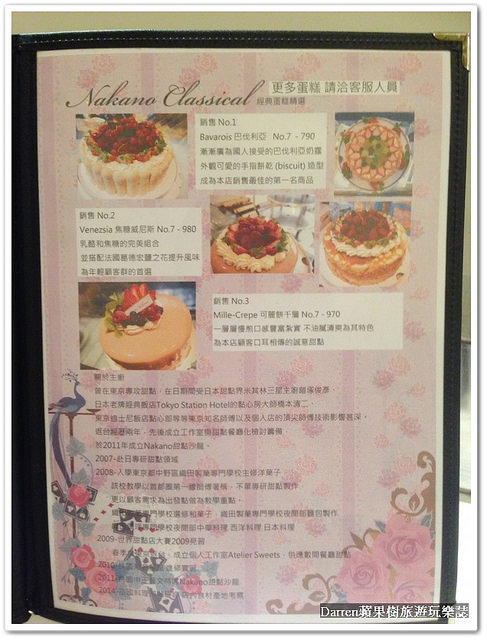 Nakano Classical 經典蛋糕精選
更多蛋糕 請洽客服人員
銷售 No.1
Bavarois 巴伐利亞 No.7 - 790
漸漸廣為國人接受的巴伐利亞奶霜
外觀可愛的手指餅乾 (biscuit) 造型
成為本店銷售最佳的第一名商品
銷售 No.2
Venezsia 焦糖威尼斯 No.7 - 980
乳酪和焦糖的完美組合
並搭配法國葛德宏鹽之花提升風味
為年輕顧客群的首選
銷售 No.3
Mille-Crepe 可麗餅千層 No.7 - 970
一層層慢煎口感豐富紮實 不油膩清爽為其特色
為本店顧客口耳相傳的誠意甜點
關於主廚
曾在東京專攻甜點，在日期間受日本甜點界米其林三星主廚鎧塚俊彥，
日本老牌經典飯店Tokyo Station Hotel的點心房大師橋本清二，
東京迪士尼飯店點心部等等東京知名師傅以及個人店的頂尖師傅技術影響甚深，
返台經歷兩年，先後成立工作室與甜點餐廳化檢討籌備
於2011年成立Nakano甜點沙龍。
2007-赴日專研甜點領域
2008-入學東京都中野區織田製菓專門學校主修洋菓子
該校教學以首都圈第一線師傅著稱，不單專研甜點製作
更以顧客需求為出發點做為教學重點。
專門學校選修和菓子，織田製菓專門學校夜間部麵包製作
專門學校夜間部中華料理 西洋料理 日本料理
2009-世界甜點店大賽2009亮習
成立個人工作室Atelier Sweets，供應數間餐廳甜點
Nakano甜點沙龍
食材產地考察
Darren蘋果樹旅遊玩樂誌